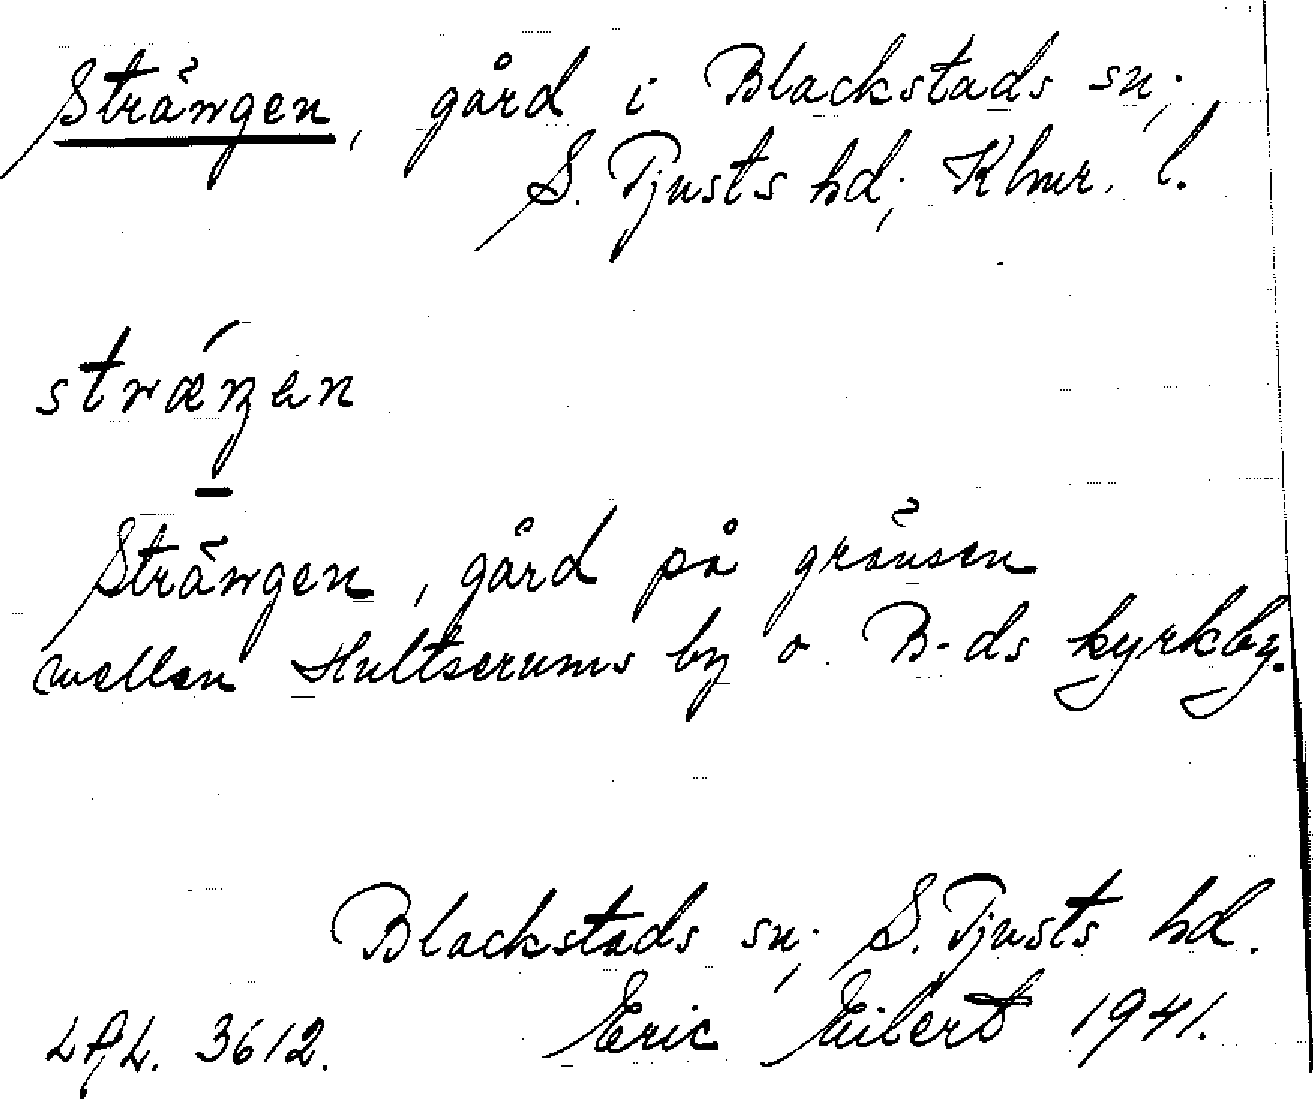 Strängen, gård i Blackstads sn;
S. Tjusts hd; Klmr. l.
stræŋen
Strängen, gård på gränsen
mellan Hultserums by o. B-ds kyrkby.
Blackstads sn; S. Tjusts hd.
LAL. 3612. Eric Eilert 1941.